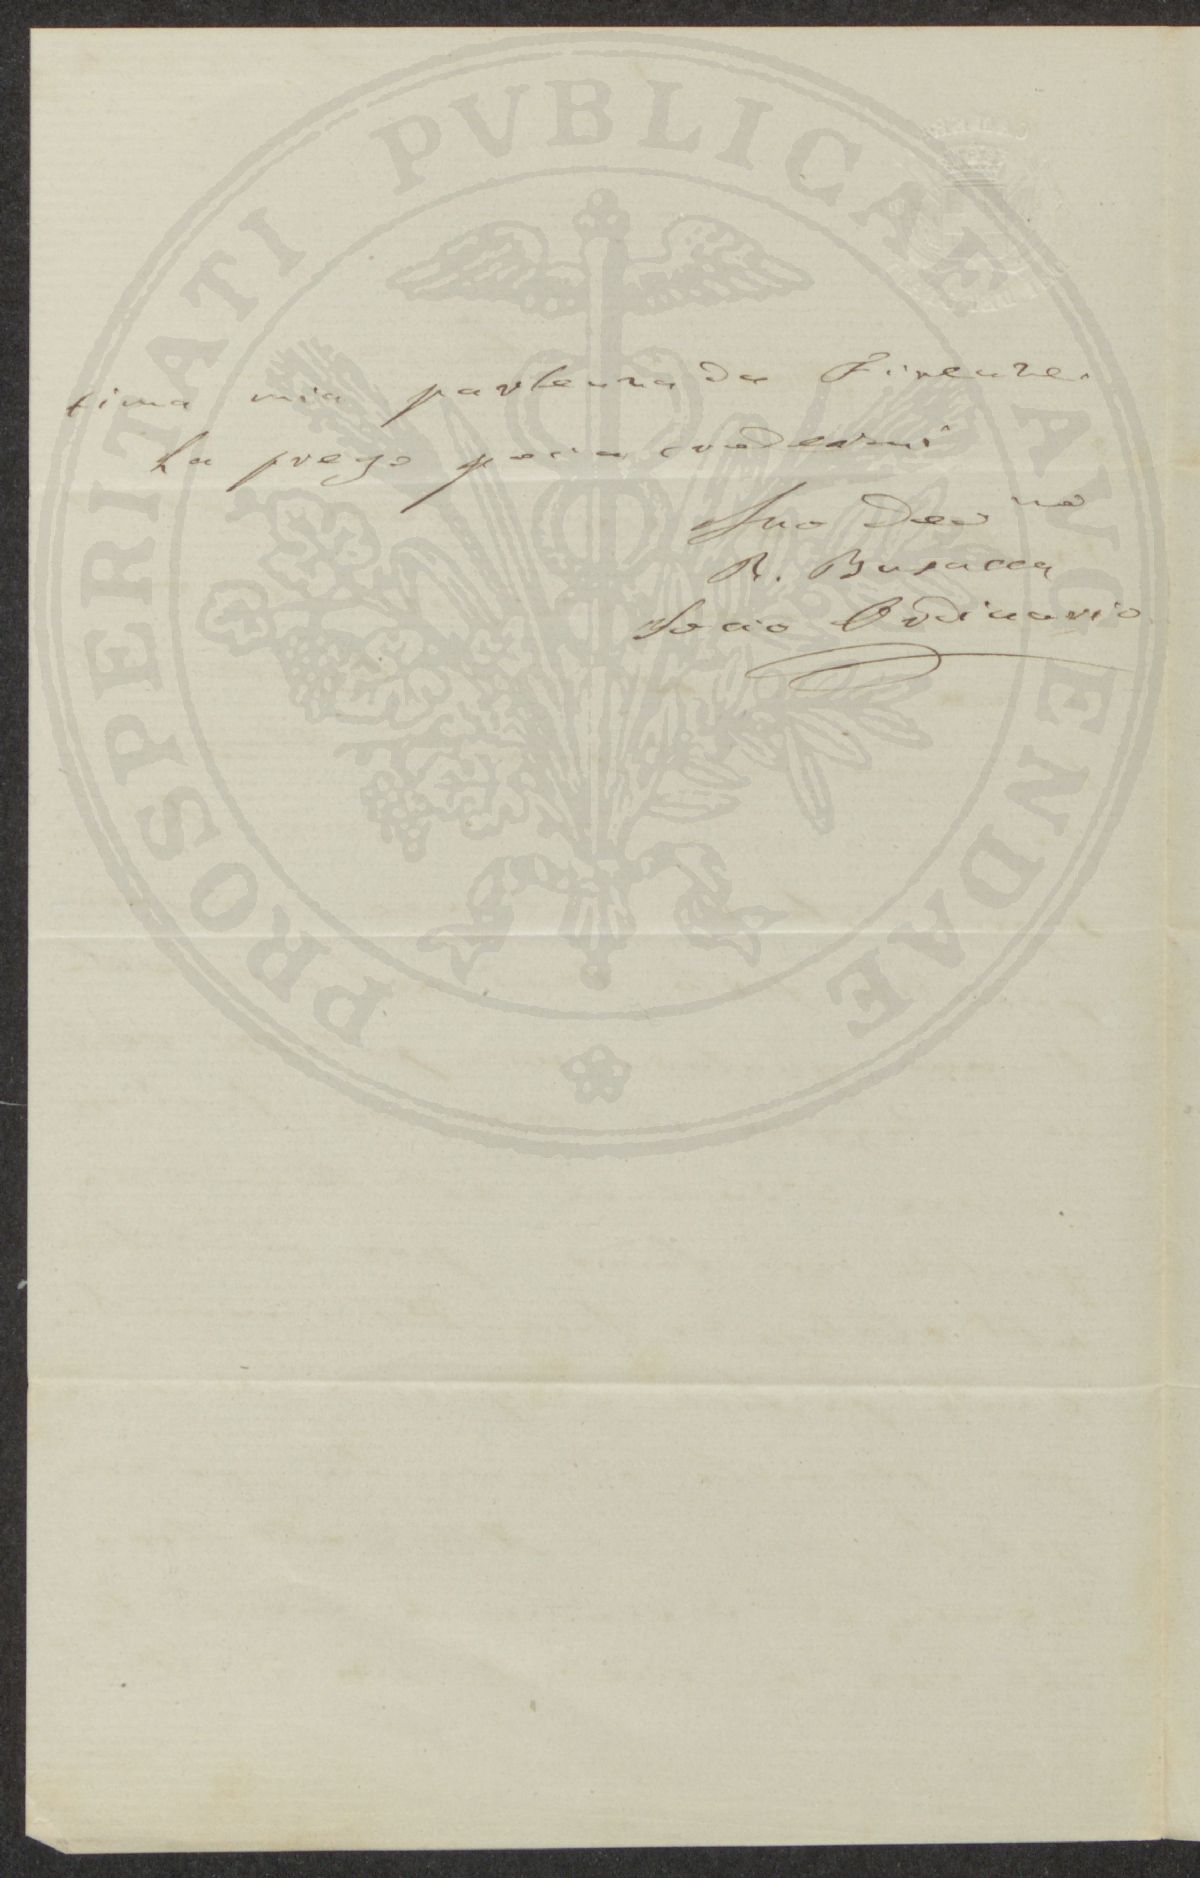 PROSPERITATI PVBLICAE AVGENDAE
tima mia partenza da Firenze.
La prego poi a credermi
Suo Dev mo
R. Busacca
Socio Ordinario